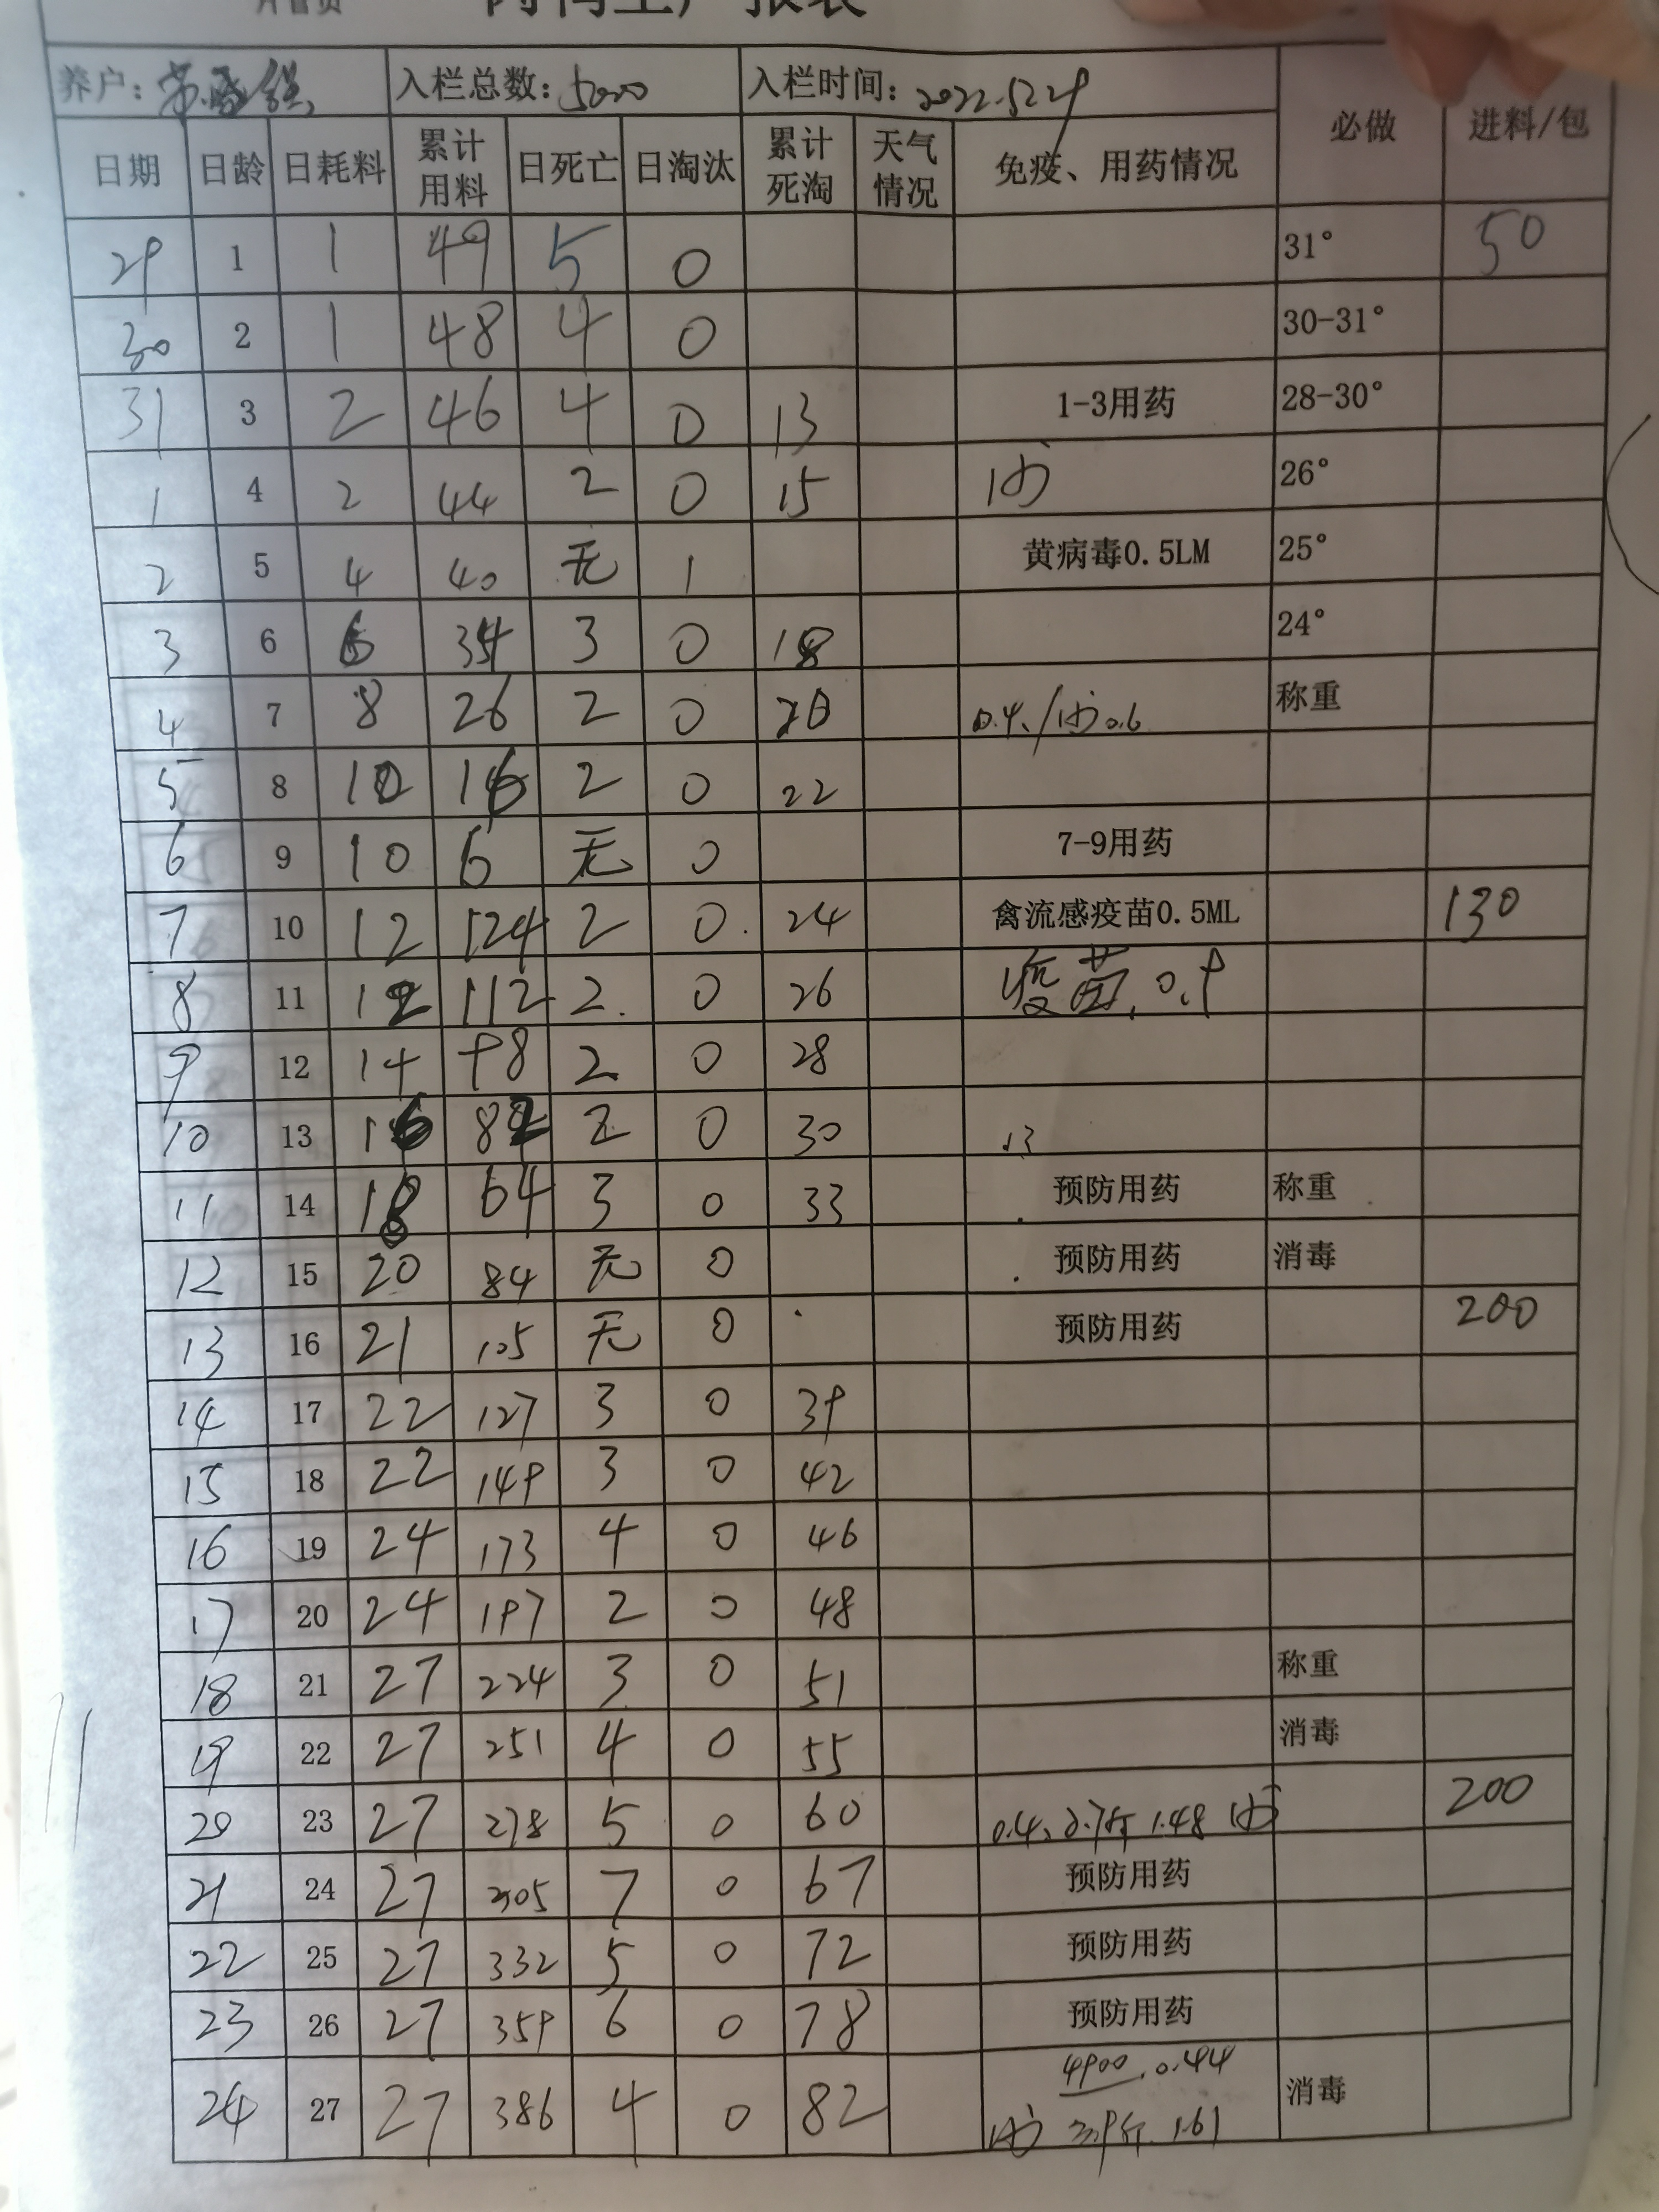 养户： 入栏总数：5000 入栏时间：2022.5.29
日期 日龄 日耗料 累计用料 日死亡 日淘汰 累计死淘 天气情况 免疫、用药情况 必做 进料/包
29 1 1 49 5 0 31° 50
30 2 1 48 4 0 30-31°
31 3 2 46 4 0 13 1-3用药 28-30°
1 4 2 44 2 0 15 26°
2 5 4 40 无 1 黄病毒0.5LM 25°
3 6 6 34 3 0 18 24°
4 7 8 26 2 0 20 0.4 0.6 称重
5 8 10 16 2 0 22
6 9 10 6 无 0 7-9用药
7 10 12 124 2 0 24 禽流感疫苗0.5ML 130
8 11 12 112 2 0 26 疫苗,0.9
9 12 14 98 2 0 28
10 13 16 82 2 0 30 .13
11 14 18 64 3 0 33 预防用药 称重
12 15 20 84 无 0 预防用药 消毒
13 16 21 105 无 0 预防用药 200
14 17 22 127 3 0 39
15 18 22 149 3 0 42
16 19 24 173 4 0 46
17 20 24 197 2 0 48
18 21 27 224 3 0 51 称重
19 22 27 251 4 0 55 消毒
20 23 27 278 5 0 60 0.4、2.7斤 1.48 200
21 24 27 305 7 0 67 预防用药
22 25 27 332 5 0 72 预防用药
23 26 27 359 6 0 78 预防用药
24 27 27 386 4 0 82 4900 0.44 消毒
1.61